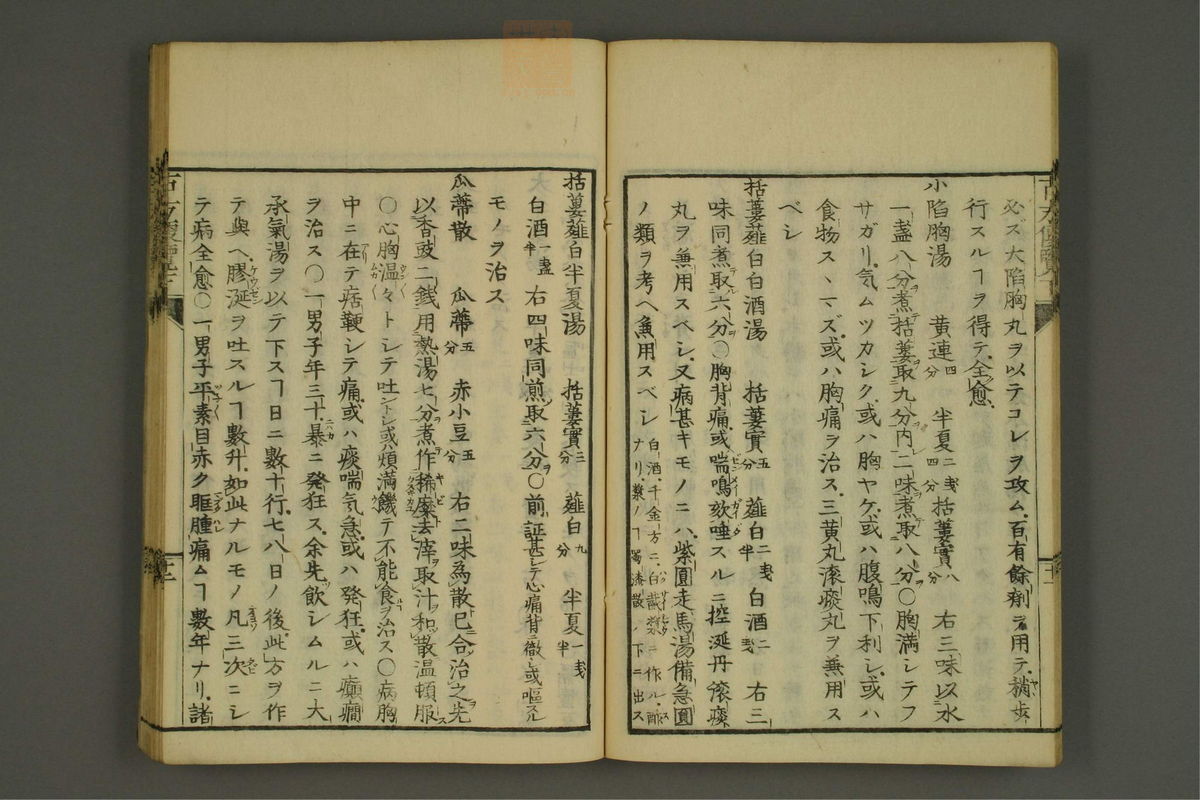 必ズ大陷胸丸ヲ以テコレヲ攻ム百有餘劑ヲ用テ稍歩
行スルヿヲ得テ全愈
小陷胸湯 黄連四分 半夏二戔四分 括蔞實八分 右三味以水
一盞八分煮括蔞取九分内二味煮取八分〇胸滿シテフ
サガリ気ムツカシク或ハ胸ヤケ或ハ腹鳴下利シ或ハ
食物スヽマズ或ハ胸痛ヲ治ス三黄丸滚痰丸ヲ兼用ス
ベシ
括蔞薤白白酒湯 括蔞實五分 薤白二戔半 白酒二戔 右三
味同煮取六分〇胸背痛或喘鳴欬唾スルニ控涎丹滚痰
丸ヲ兼用スベシ又病甚キモノニハ紫圓走馬湯備急圓
ノ類ヲ考ヘ兼用スベシ 白酒千金方ニ白截漿ニ作ル酢ナリ漿ノヿ蜀漆散ノ下ニ出ス
括蔞薤白半夏湯 括蔞實三分 薤白九分 半夏一戔半
白酒一盞半 右四味同煎取六分〇前証甚シテ心痛背ニ徹シ或嘔スル
モノヲ治ス
瓜蔕散 瓜蔕五分 赤小豆五分 右二味為散已合治之先
以香豉二銭用熱湯七分煮作稀糜去滓取汁和散温頓服
〇心胸温々トシテ吐ントシ或ハ煩滿饑テ不能食ヲ治ス〇病胸
中ニ在テ痞鞕シテ痛或ハ痰喘気急或ハ発狂或ハ癲癇
ヲ治ス〇一男子年三十暴ニ発狂ス余先飲シムルニ大
承氣湯ヲ以テ下スヿ日ニ數十行七八日ノ後此方ヲ作
テ與ヘ膠涎ヲ吐スルヿ數升如此ナルモノ凡三次ニシ
テ病全愈〇一男子平素目赤ク眶腫痛ムヿ數年ナリ諸